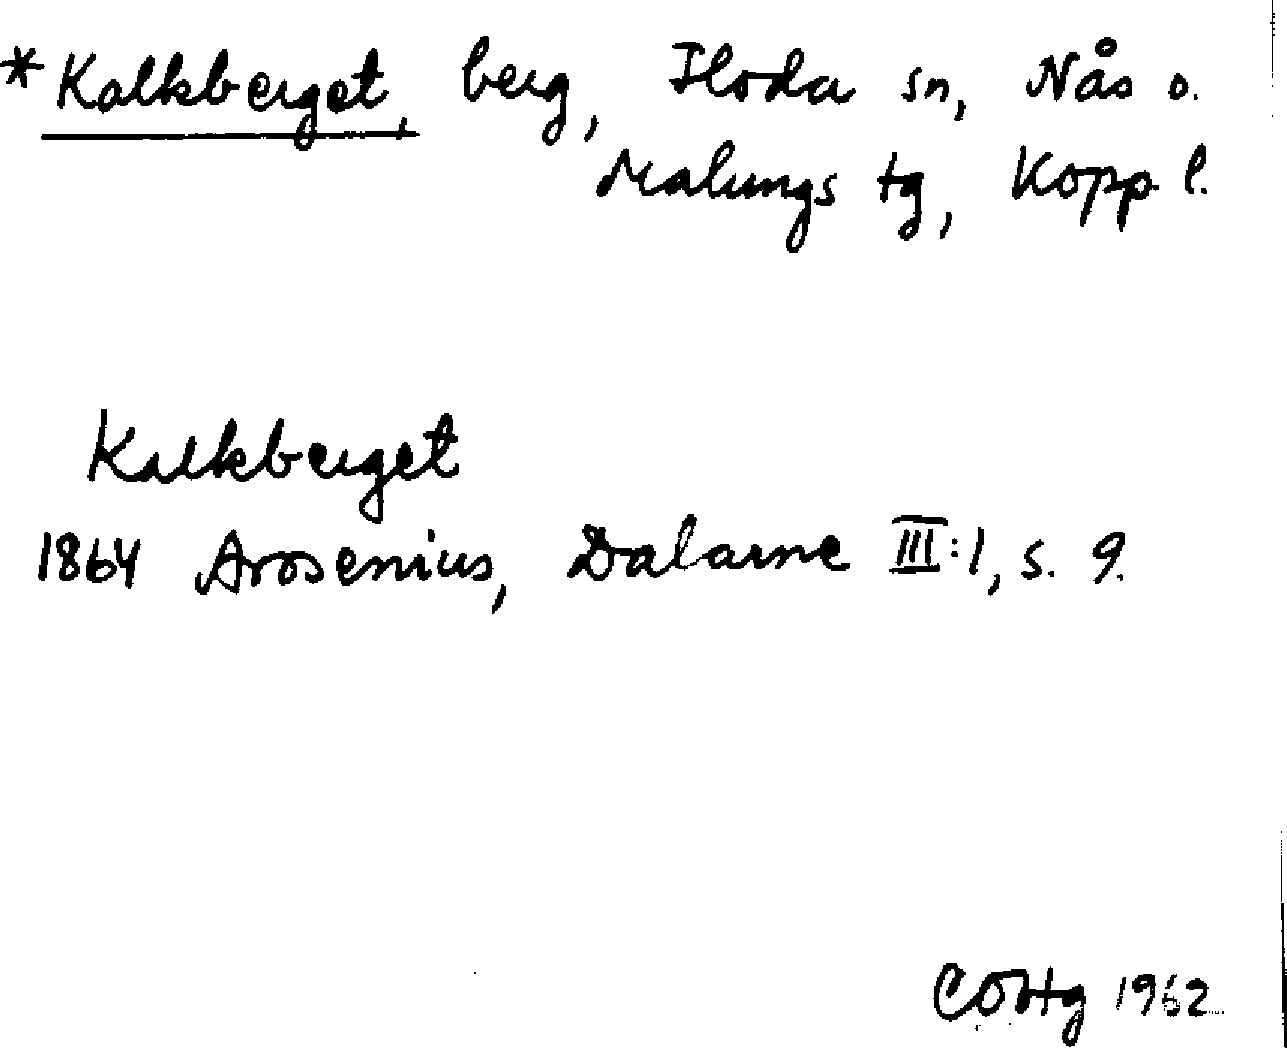 *Kalkberget, berg, Floda sn, Nås o.
Malungs tg, Kopp. l.
Kalkberget
1864 Arosenius, Dalarne III:1, s. 9.
COHg 1962